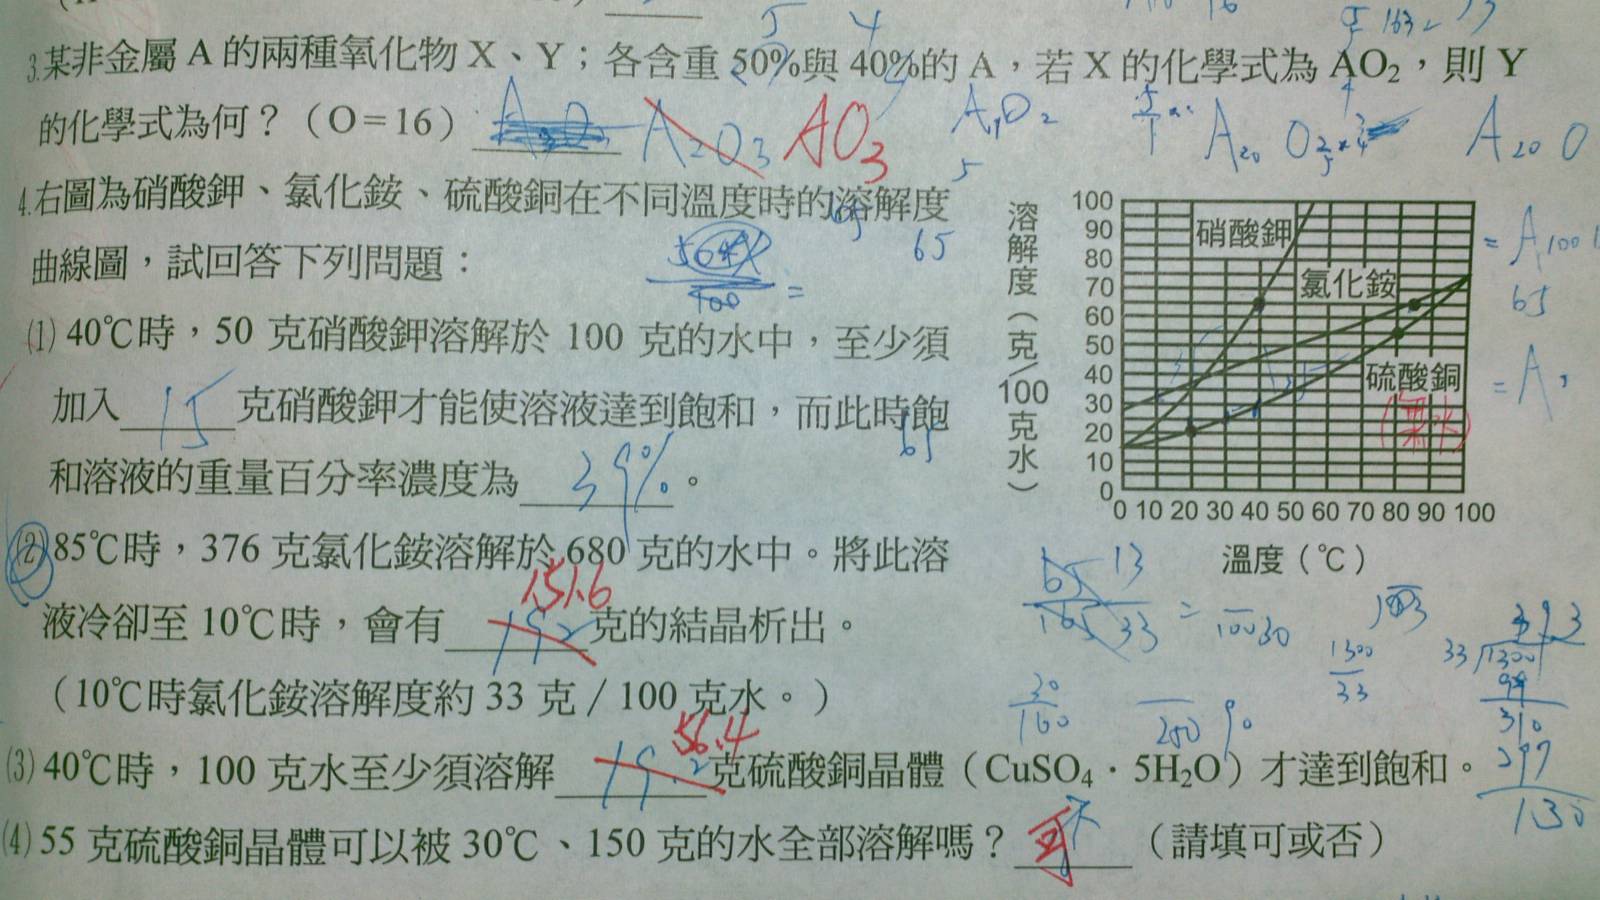 3.某非金屬 A 的兩種氧化物 X、Y；各含重 50%與 40%的 A，若 X 的化學式為 AO₂，則 Y
的化學式為何？（O＝16） A₂O₃ AO₃
4.右圖為硝酸鉀、氯化銨、硫酸銅在不同溫度時的溶解度
曲線圖，試回答下列問題：
⑴ 40℃時，50 克硝酸鉀溶解於 100 克的水中，至少須
加入 15 克硝酸鉀才能使溶液達到飽和，而此時飽
和溶液的重量百分率濃度為 39% 。
⑵ 85℃時，376 克氯化銨溶解於 680 克的水中。將此溶
151.6
液冷卻至 10℃時，會有 192 克的結晶析出。
（10℃時氯化銨溶解度約 33 克／100 克水。）
56.4
⑶ 40℃時，100 克水至少須溶解 19.2 克硫酸銅晶體（CuSO₄．5H₂O）才達到飽和。
⑷ 55 克硫酸銅晶體可以被 30℃、150 克的水全部溶解嗎？ 可 （請填可或否）
溶解度（克/100克水）
100
90
80
70
60
50
40
30
20
10
0
硝酸鉀
氯化銨
硫酸銅
(無水)
0 10 20 30 40 50 60 70 80 90 100
溫度（℃）
65
65
65